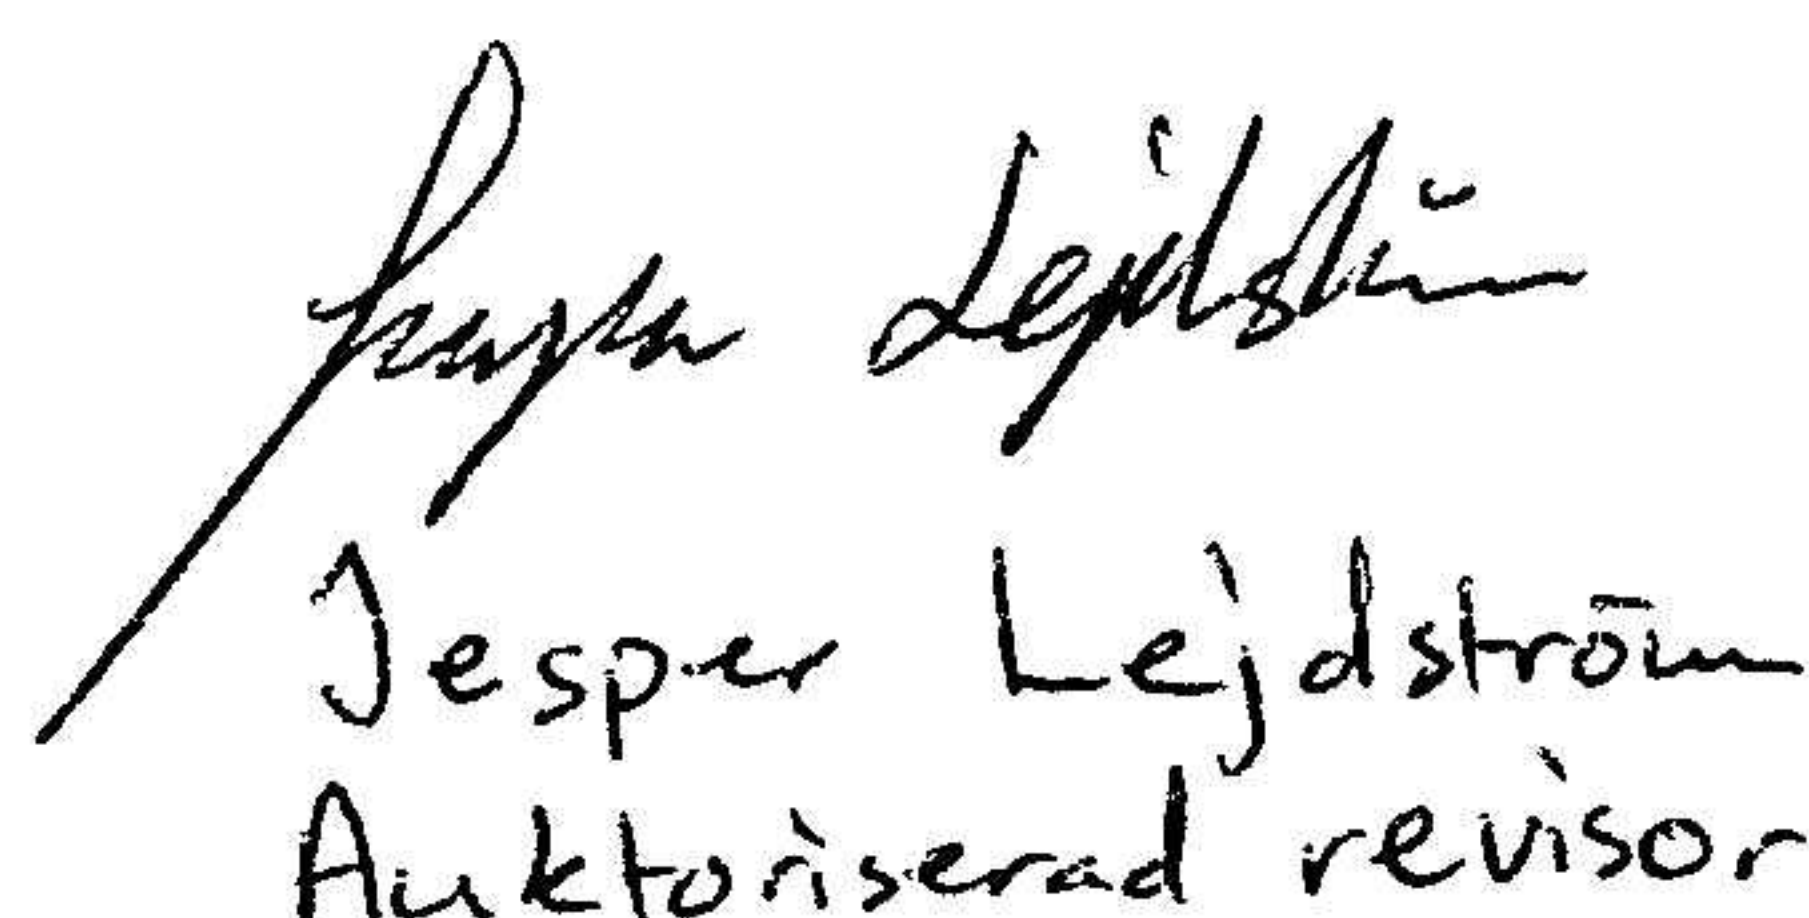 Jesper Lejdström
Jesper Lejdström
Auktoriserad revisor